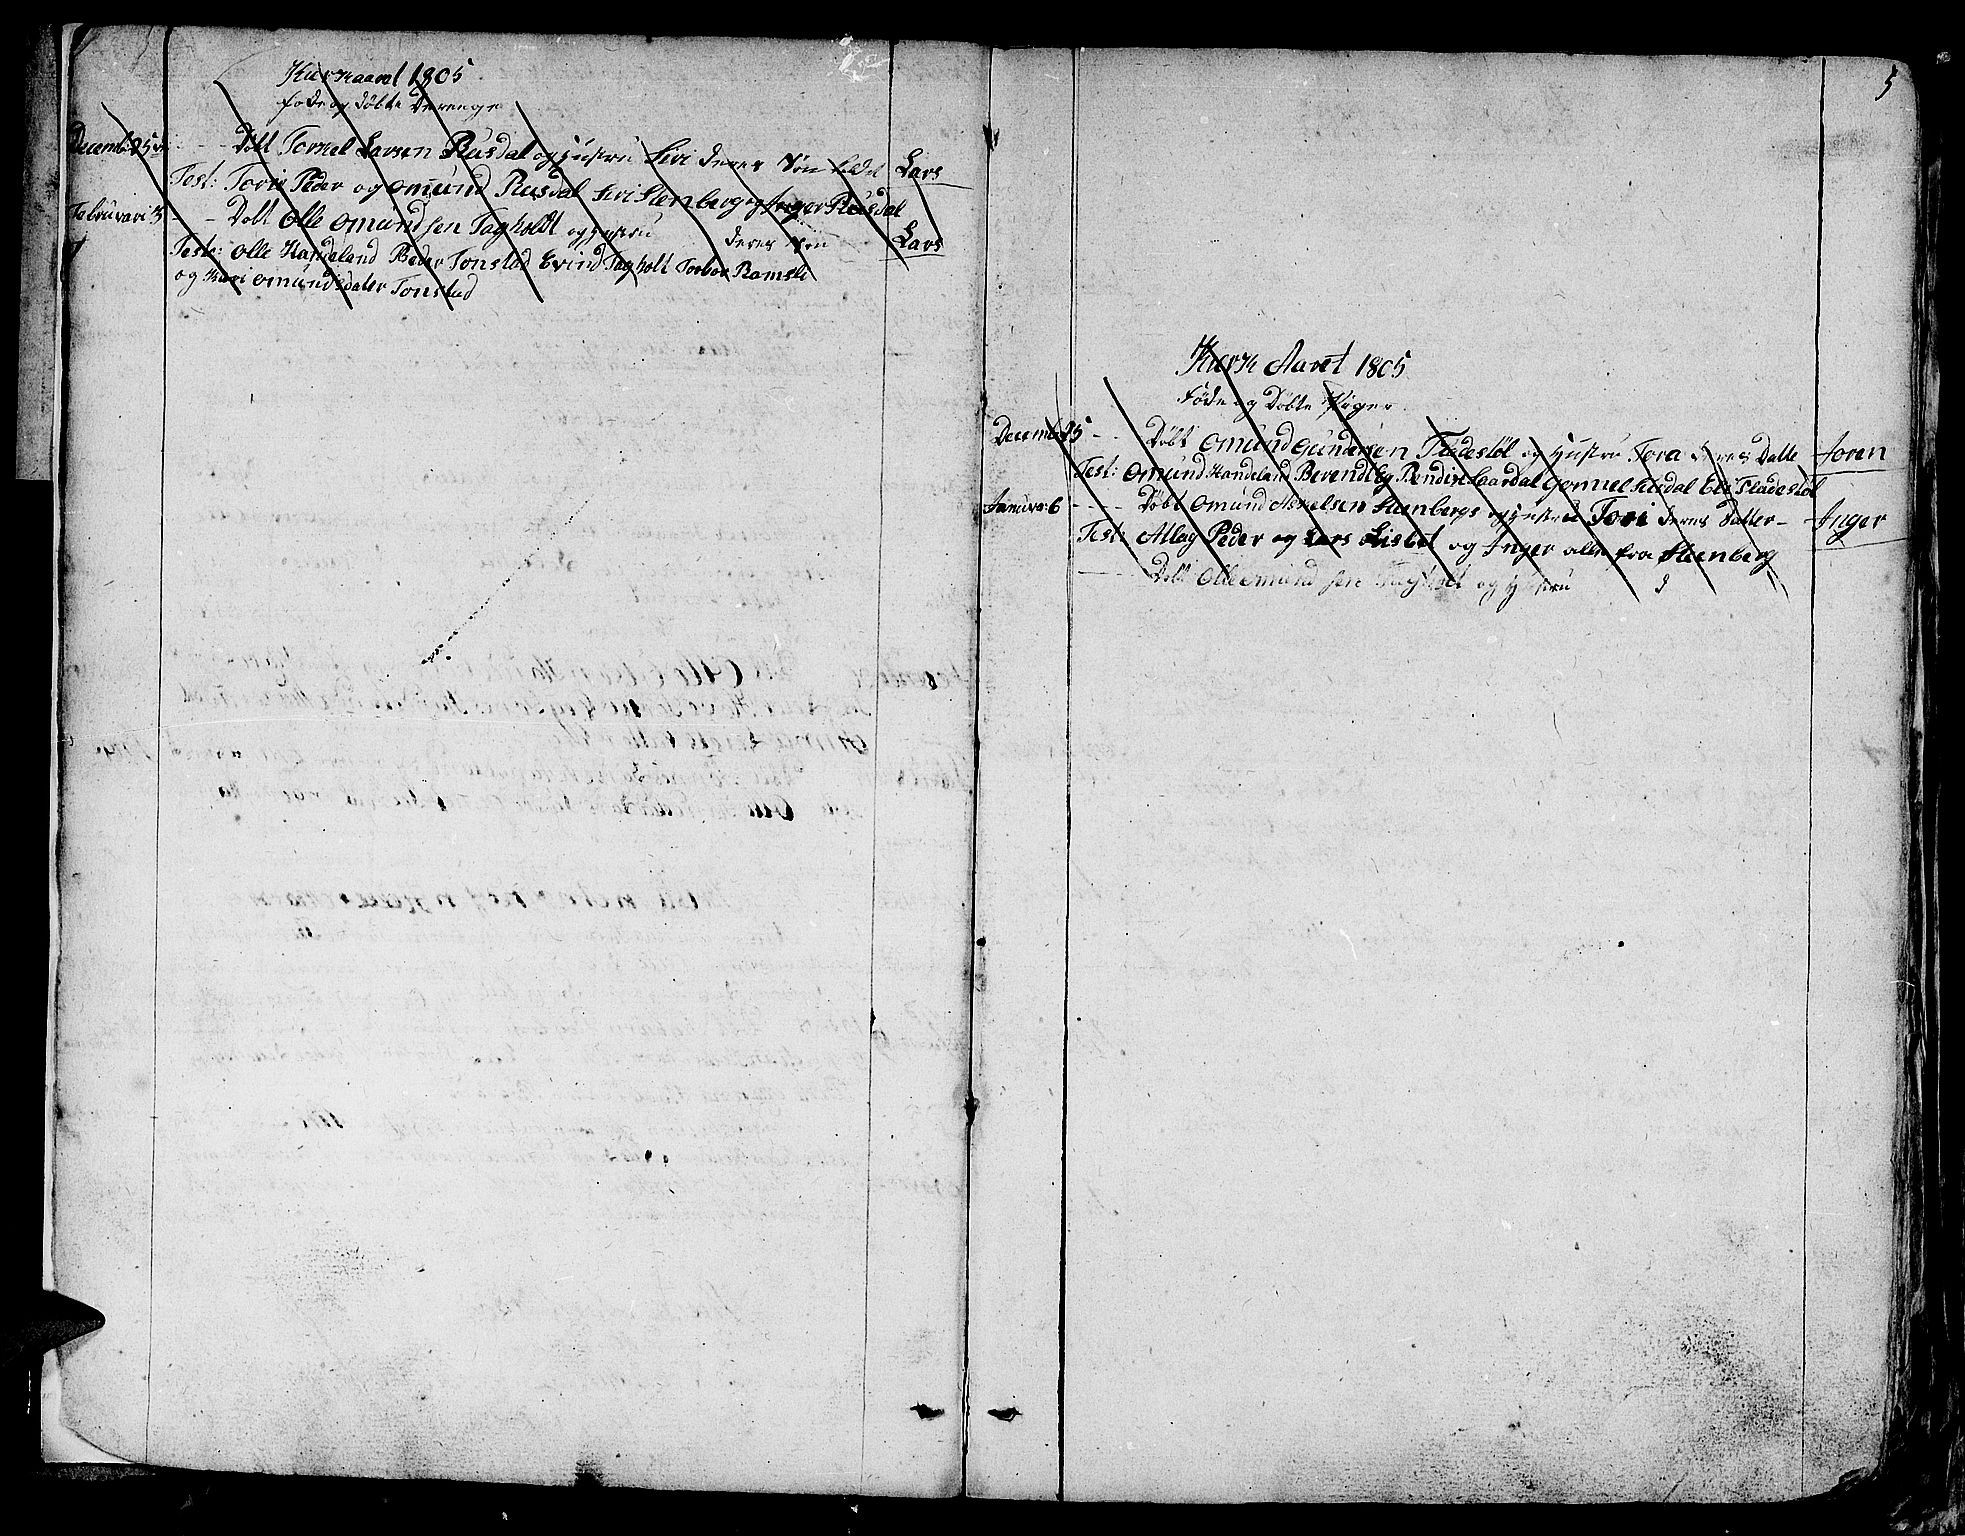 Kierkeaaret 1805
føde og døbte Drenge
Decemb: 25 - - - Døbt Tormel Larsen Rusdal og Hustru Siri deres Søn kaldet Lars
Test: Toris Peder og Omund Rusdal Siri Steenberg og Inger Rusdal
Februari 3 - - Døbt Olle Omundsen Fagholdt og Hustru deres Søn Lars
Test: Olle Handeland Peder Tonstad Evind Fagholt Torbor Ramsli
og Kari Omundsdater Tonstad
5
Kierk Aaret 1805
Føde og Døbte Piger
Decemb 25 - - Døbt Omund Gundersen Fladestøl og Hustru Tora deres Datte Joren
Test: Omund Handeland Berend Eg Bendix Laardal Gonnel Sirdal Eli Fladestøl
Januva: 6 - - - - Døbt Omund Asnelsen Steenbergs og Hustru Tori deres Datter - Inger
Test: Atlag Peder og Lars Lisbet og Inger alle fra Steenberg
- - - - Døbt Olle Omundsen Fagholt og Hustru d